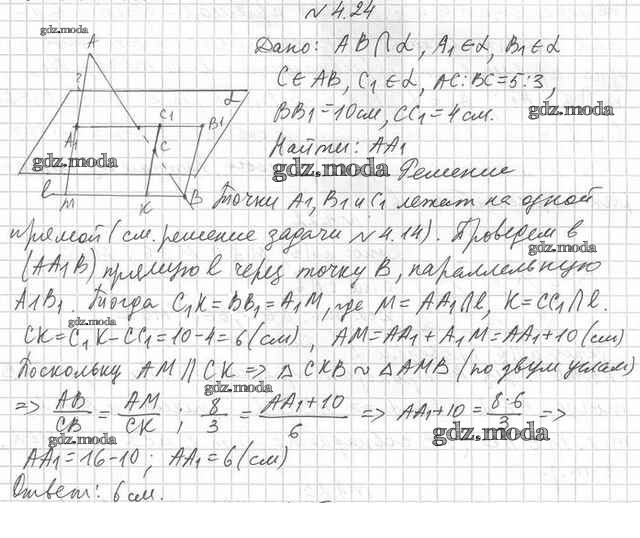 №4.24
gdz.moda
A
Дано: AB∩α, A₁∈α, B₁∈α
?
α
C∈AB, C₁∈α, AC:BC=5:3,
C₁
BB₁=10см, CC₁=4см.
gdz.moda
A₁
B₁
C
Найти: AA₁
gdz.moda
gdz.moda
Решение
l
M
K
B
Точки A₁, B₁ и C₁ лежат на одной
прямой (см. решение задачи №4.14). Проведем в
gdz.moda
(AA₁B) прямую l через точку B, параллельную
A₁B₁. Тогда C₁K=BB₁=A₁M, где M=AA₁∩l, K=CC₁∩l.
gdz.moda
CK=C₁K-CC₁=10-4=6(см), AM=AA₁+A₁M=AA₁+10(см)
Поскольку AM∥CK => △CKB∾△AMB (по двум углам)
gdz.moda
=> AB/CB = AM/CK; 8/3 = AA₁+10/6 => AA₁+10 = 8·6/3 =>
gdz.moda
AA₁=16-10; AA₁=6(см)
gdz.moda
Ответ: 6см.